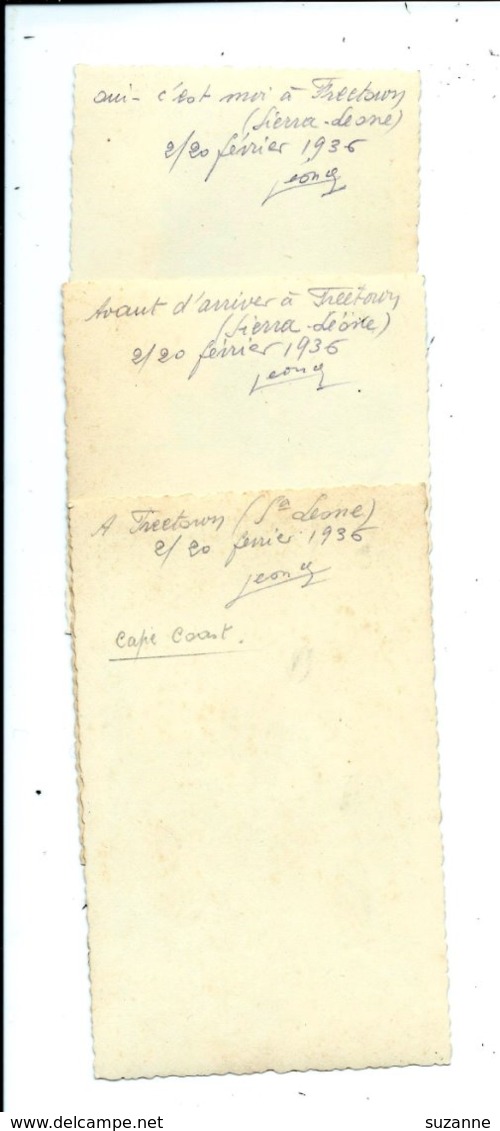 oui - c'est moi à Freetown
(Sierra-Leone)
2/20 février 1936
Avant d'arriver à Freetown
(Sierra-Léone)
2/20 février 1936
A Freetown (Sa Leone)
2/20 fevrier 1936
Cape Coast.
suzanne